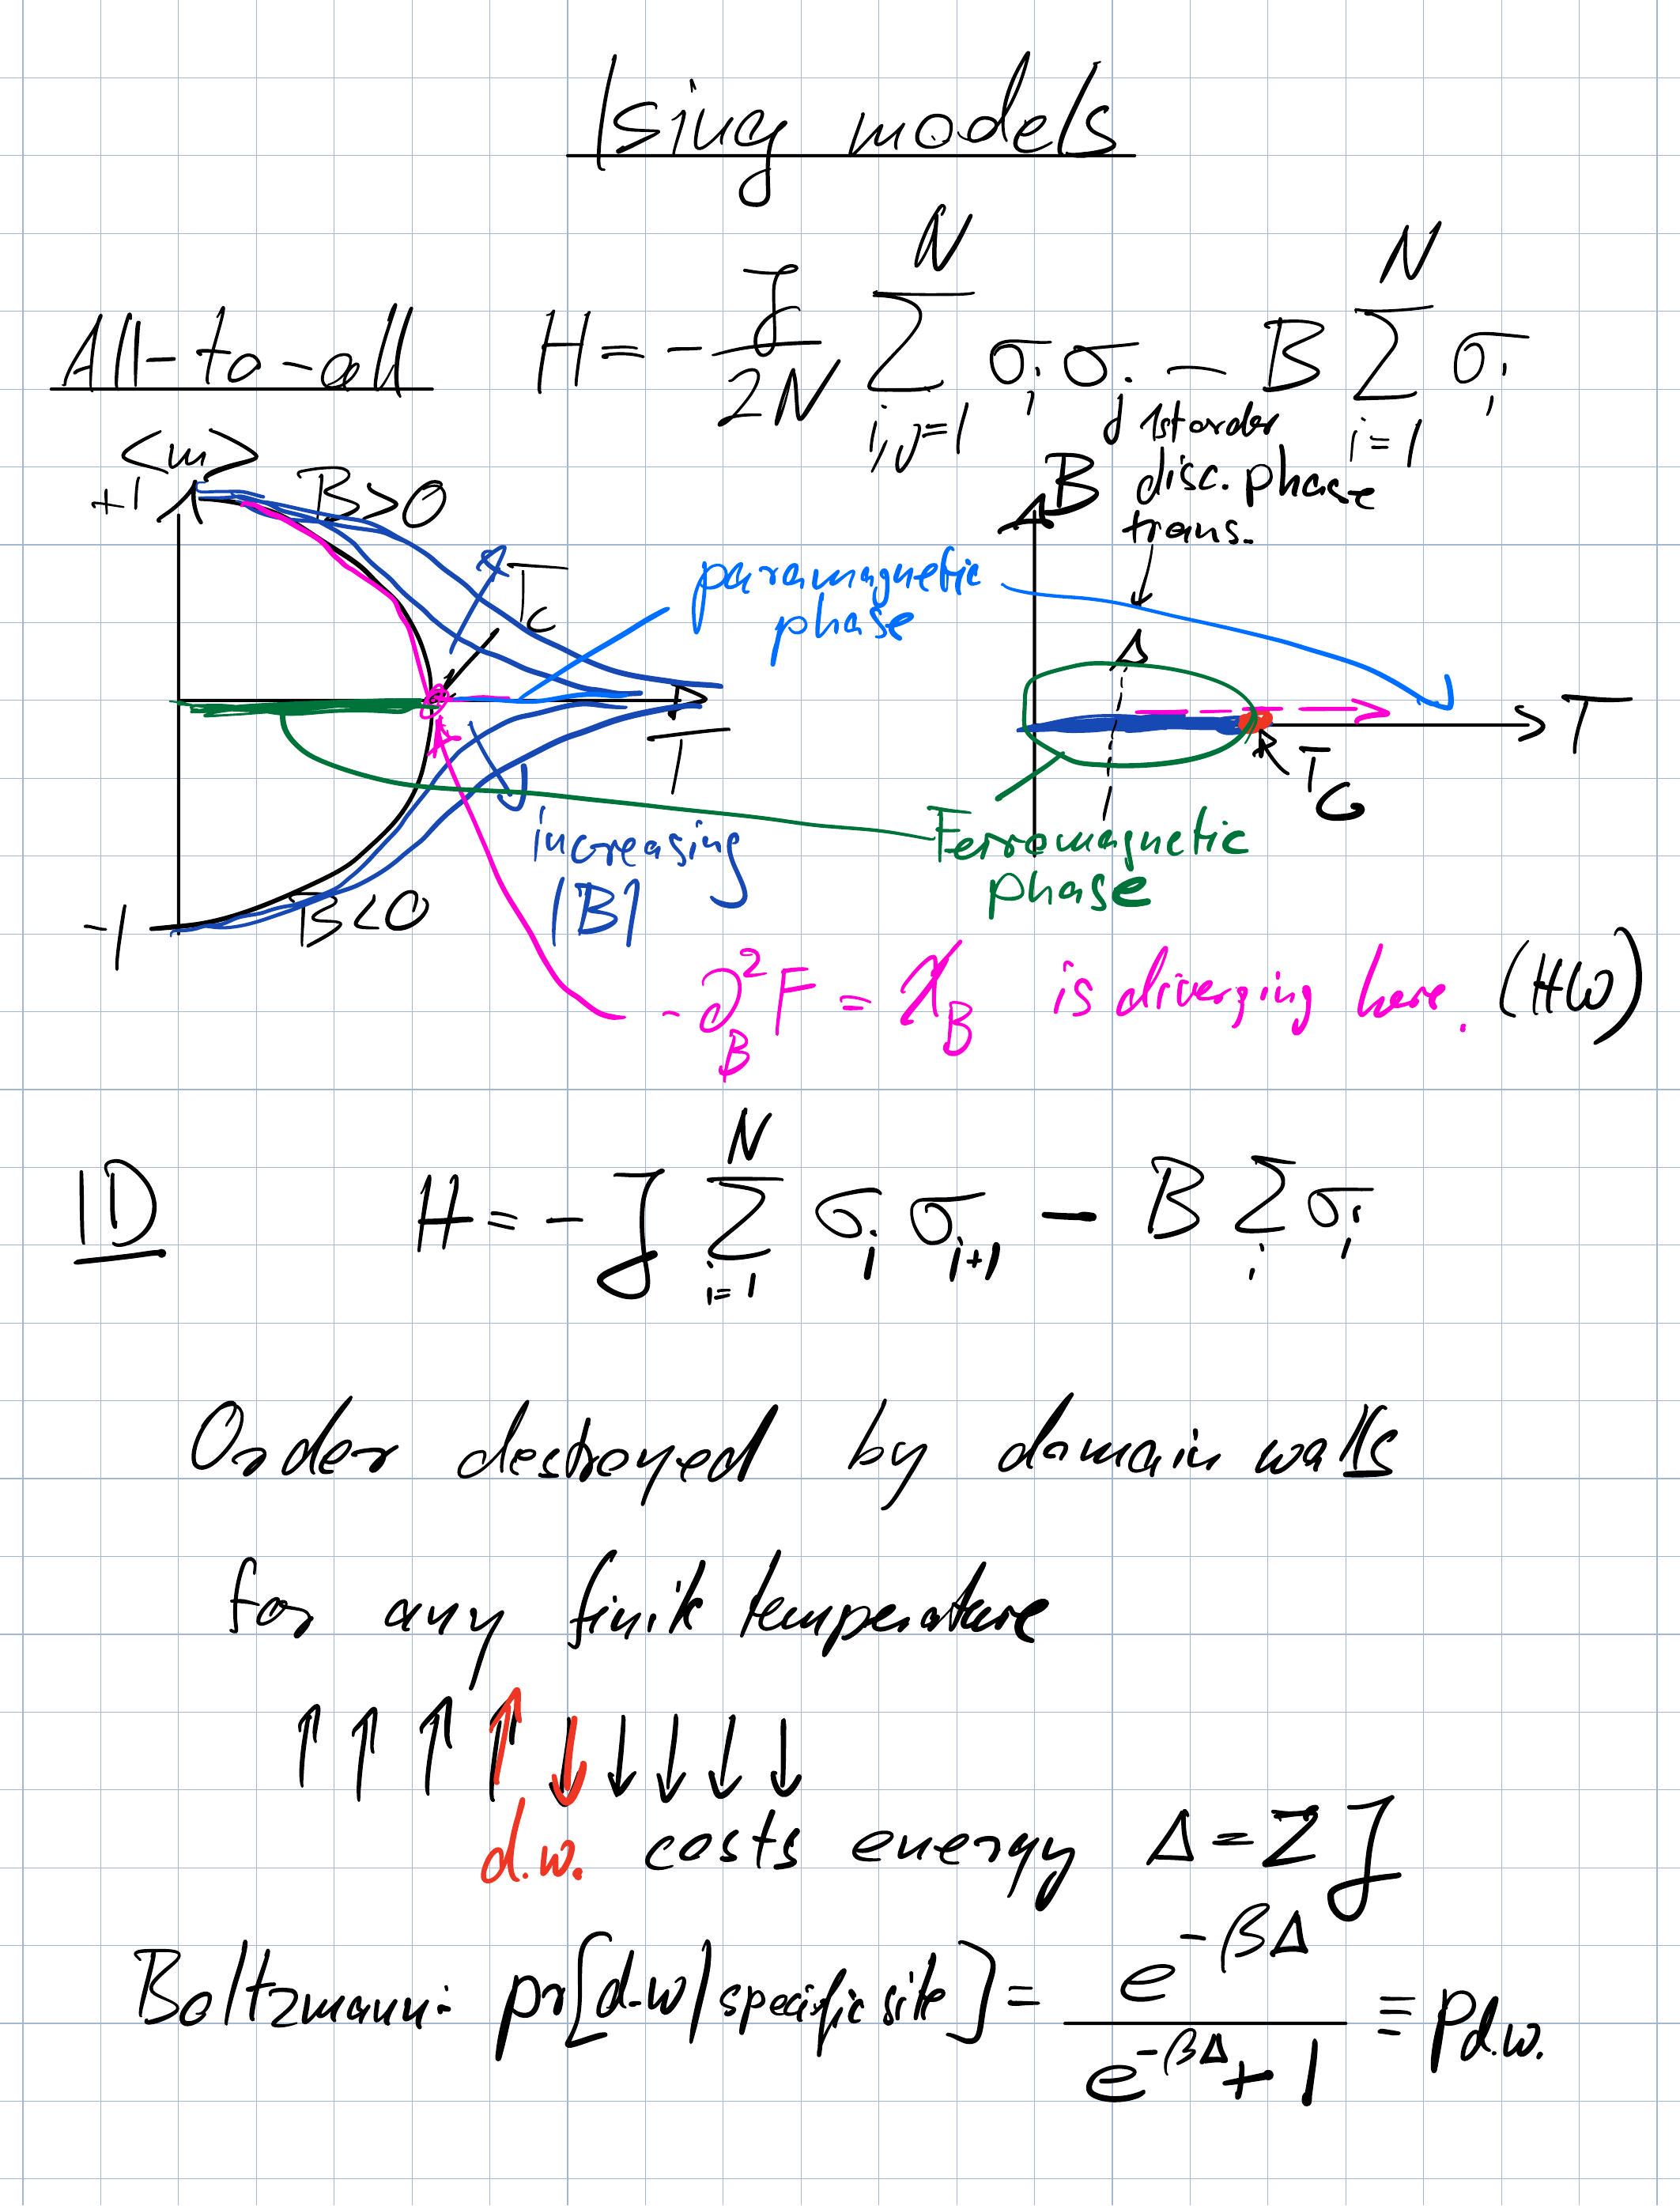 Ising models
All-to-all H = - J/2N ∑_{i,j=1}^{N} σ_i σ_j - B ∑_{i=1}^{N} σ_i
<m>
+1
B>0
T_c
paramagnetic
phase
T
increasing
|B|
B<0
-1
1st order
disc. phase
trans.
B
T
T_C
Ferromagnetic
phase
- ∂_B^2 F = χ_B is diverging here. (HW)
1D H = - J ∑_{i=1}^{N} σ_i σ_{i+1} - B ∑_i σ_i
Order destroyed by domain walls
for any finite temperature
↑ ↑ ↑ ↑ ↓ ↓ ↓ ↓ ↓
d.w. costs energy Δ = 2J
Boltzmann: pr[d.w | specific site] = e^{-βΔ} / (e^{-βΔ} + 1) ≡ p_{d.w.}